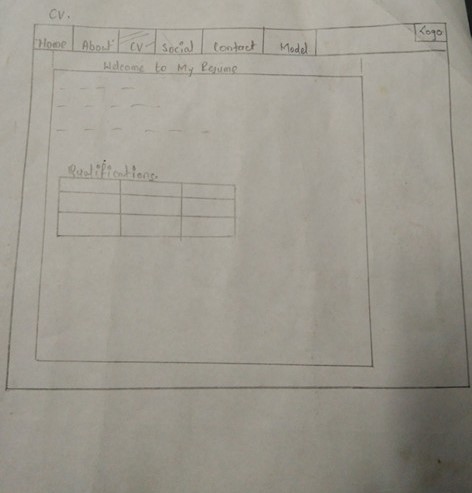 CV.
Home About CV Social Contact Model Logo
Welcome to My Resume
Qualifications.